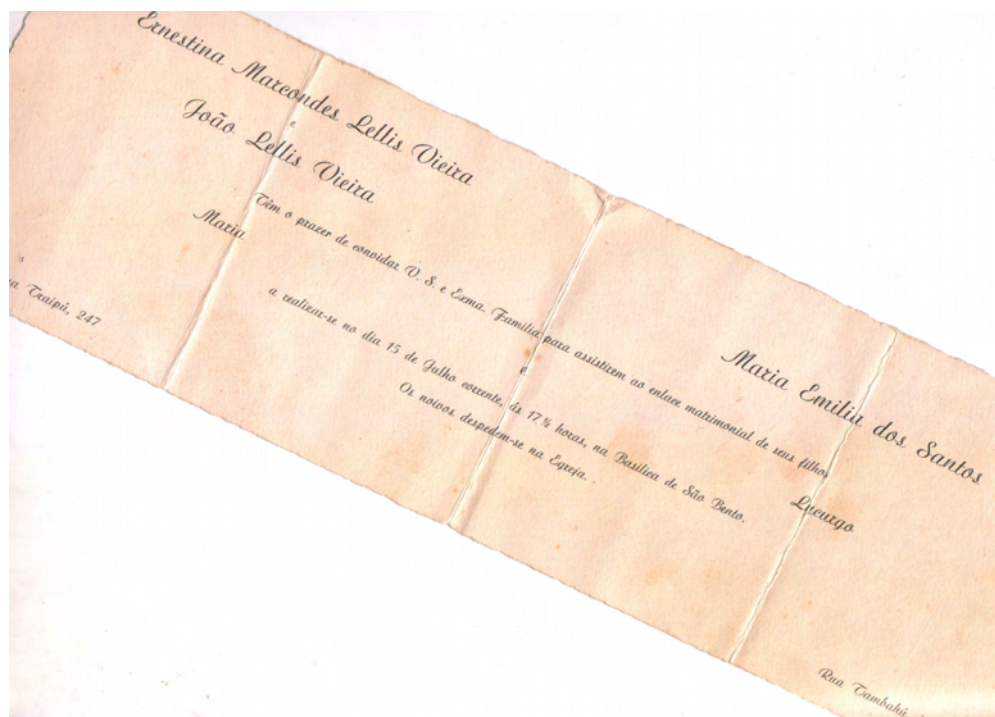 Ernestina Marcondes Lellis Vieira
e
João Lellis Vieira
Maria Emilia dos Santos
Têm o prazer de convidar V. S. e Exma. Familia para assistirem ao enlace matrimonial de seus filhos
Maria
e
Lycurgo
a realizar-se no dia 15 de Julho corrente, ás 17,½ horas, na Basilica de São Bento.
Os noivos despedem-se na Egreja.
Traipú, 247
Rua Tambahú